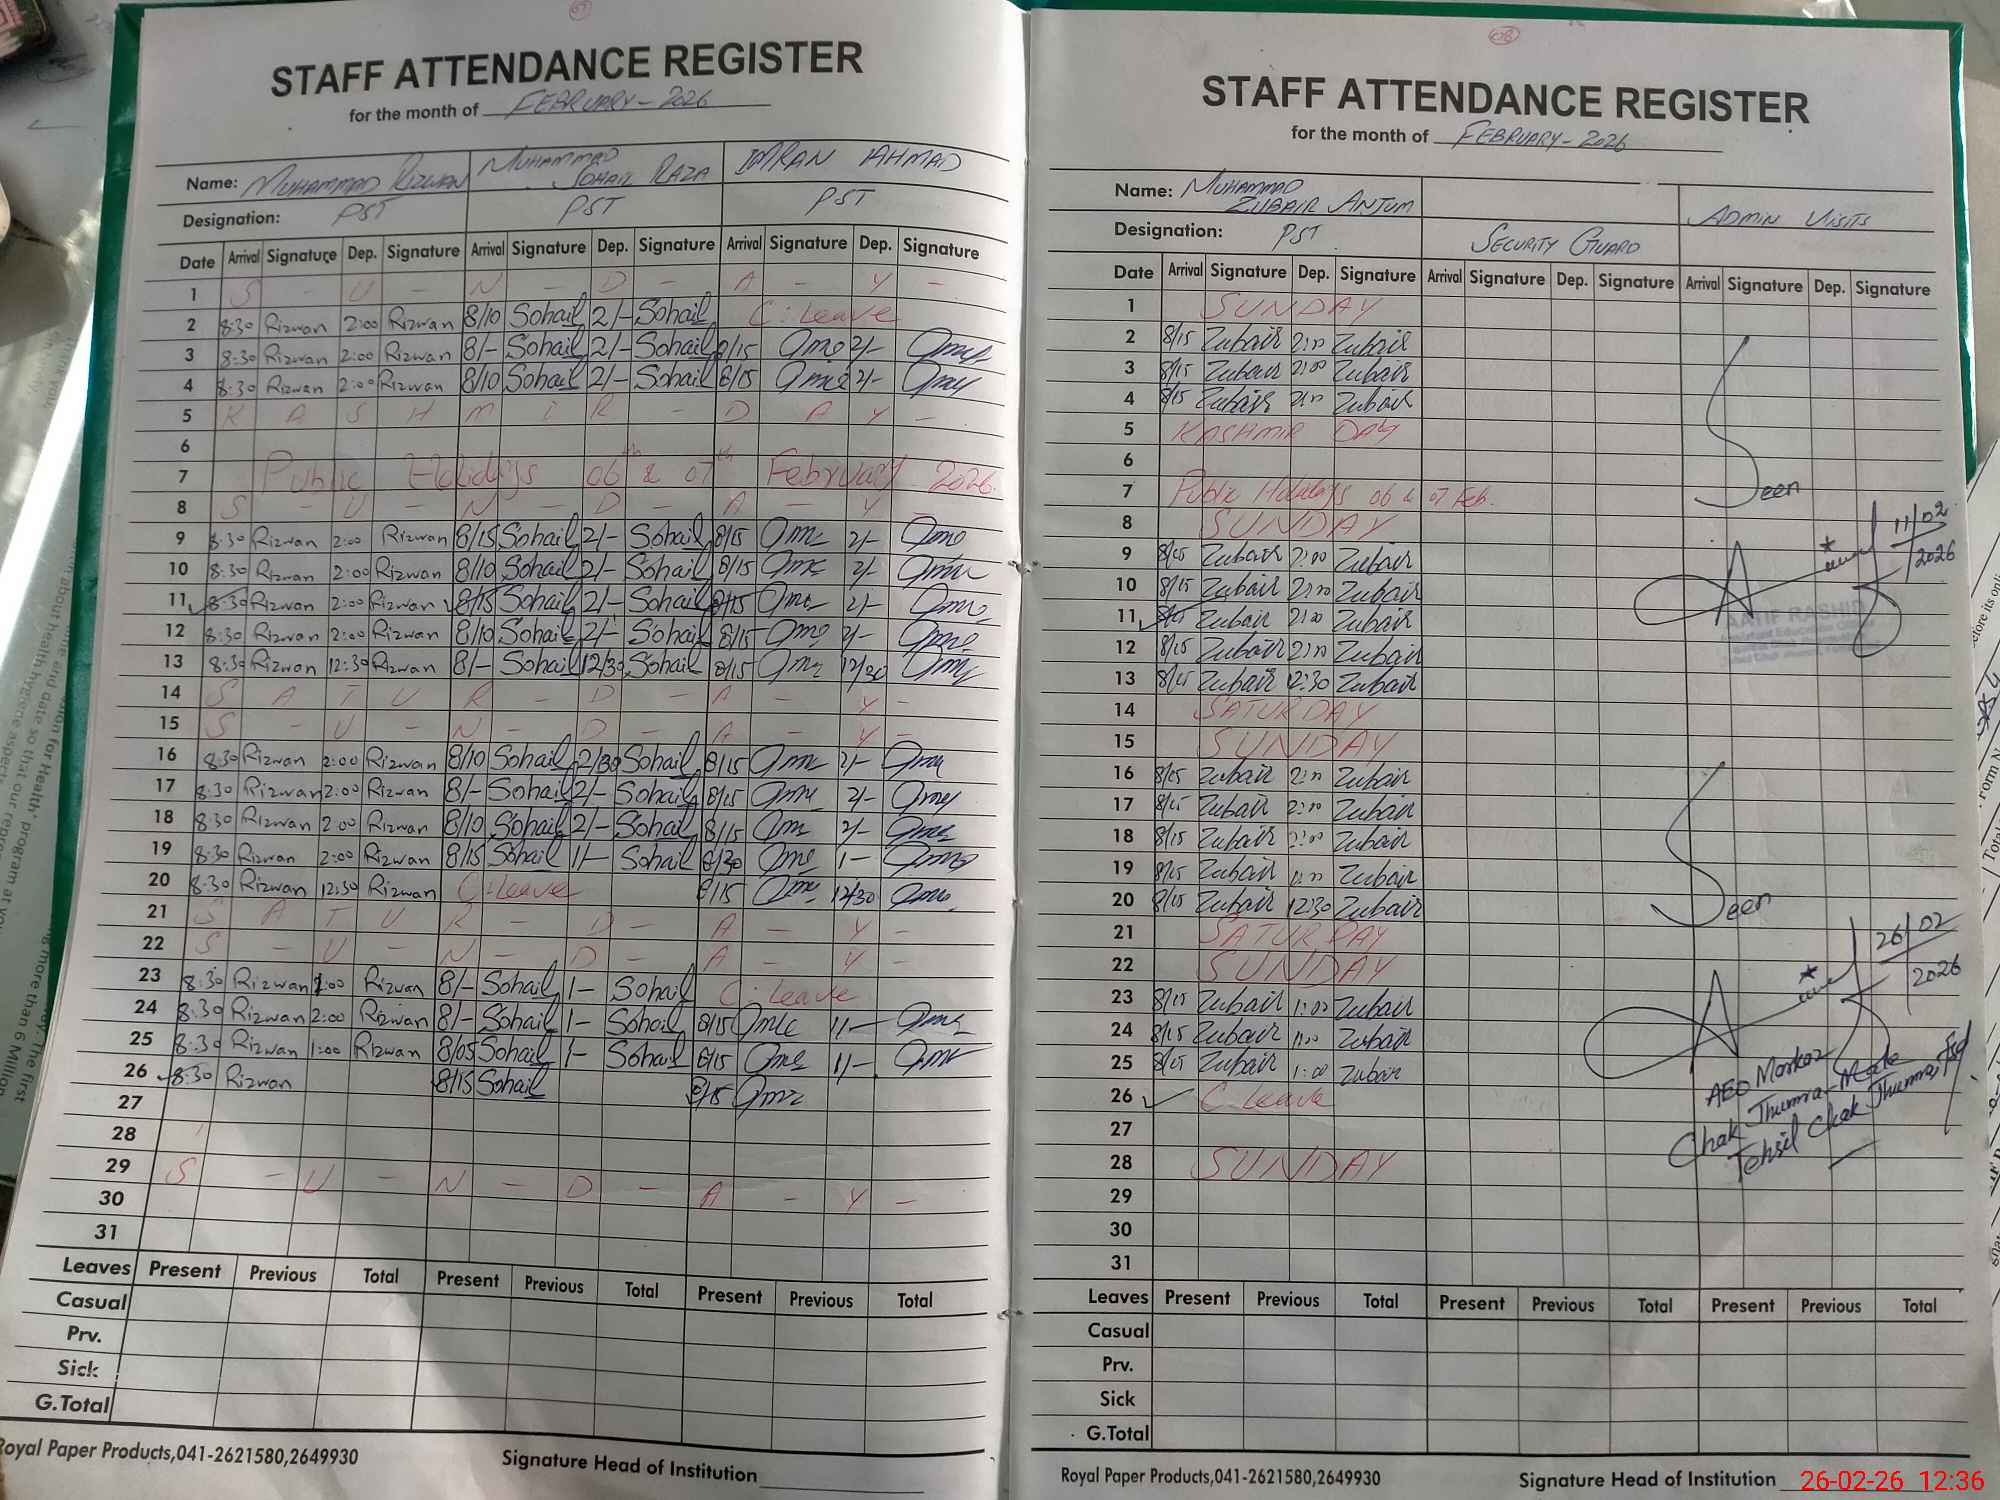 07
STAFF ATTENDANCE REGISTER
for the month of FEBRUARY-2026
Name: MUHAMMAD RIZWAN MUHAMMAD SOHAIL RAZA IMRAN AHMAD
Designation: PST PST PST
Date Arrival Signature Dep. Signature Arrival Signature Dep. Signature Arrival Signature Dep. Signature
1 S - U - N - D - A - Y -
2 8:30 Rizwan 2:00 Rizwan 8/10 Sohail 2/- Sohail C. Leave
3 8:30 Rizwan 2:00 Rizwan 8/- Sohail 2/- Sohail 8/15 2/-
4 8:30 Rizwan 2:00 Rizwan 8/10 Sohail 2/- Sohail 8/15 2/-
5 K A S H M I R - D A Y -
6
7 Public Holidays 06th & 07th February 2026.
8 S - U - N - D - A - Y -
9 8:30 Rizwan 2:00 Rizwan 8/15 Sohail 2/- Sohail 8/15 2/-
10 8:30 Rizwan 2:00 Rizwan 8/10 Sohail 2/- Sohail 8/15 2/-
11 8:30 Rizwan 2:00 Rizwan 8/15 Sohail 2/- Sohail 8/15 2/-
12 8:30 Rizwan 2:00 Rizwan 8/10 Sohail 2/- Sohail 8/15 2/-
13 8:30 Rizwan 12:30 Rizwan 8/- Sohail 12/30 Sohail 8/15 12/30
14 S A T U R - D - A - Y -
15 S - U - N - D - A - Y -
16 8:30 Rizwan 2:00 Rizwan 8/10 Sohail 2/30 Sohail 8/15 2/-
17 8:30 Rizwan 2:00 Rizwan 8/- Sohail 2/- Sohail 8/15 2/-
18 8:30 Rizwan 2:00 Rizwan 8/10 Sohail 2/- Sohail 8/15 2/-
19 8:30 Rizwan 2:00 Rizwan 8/15 Sohail 1/- Sohail 8/30 1-
20 8:30 Rizwan 12:30 Rizwan C. Leave 8/15 12/30
21 S A T U R - D - A - Y -
22 S - U - N - D - A - Y -
23 8:30 Rizwan 1:00 Rizwan 8/- Sohail 1- Sohail C. Leave
24 8:30 Rizwan 2:00 Rizwan 8/- Sohail 1- Sohail 8/15 1/-
25 8:30 Rizwan 1:00 Rizwan 8/05 Sohail 1- Sohail 8/15 1/-
26 8:30 Rizwan 8/15 Sohail 8/15
27
28
29 S - U - N - D - A - Y -
30
31
Leaves Present Previous Total Present Previous Total Present Previous Total
Casual
Prv.
Sick
G.Total
Royal Paper Products,041-2621580,2649930 Signature Head of Institution
08
STAFF ATTENDANCE REGISTER
for the month of FEBRUARY-2026
Name: MUHAMMAD ZUBAIR ANJUM ADMIN VISITS
Designation: PST SECURITY GUARD
Date Arrival Signature Dep. Signature Arrival Signature Dep. Signature Arrival Signature Dep. Signature
1 SUNDAY
2 8/15 Zubair 2:00 Zubair
3 8/15 Zubair 2:00 Zubair
4 8/15 Zubair 2:00 Zubair
5 KASHMIR DAY
6
7 Public Holidays 06 & 07 Feb. Seen
8 SUNDAY 11/02/2026
9 8/15 Zubair 2:00 Zubair
10 8/15 Zubair 2:00 Zubair
11 8/15 Zubair 2:00 Zubair AATIF RASHID
12 8/15 Zubair 2:00 Zubair
13 8/15 Zubair 12:30 Zubair
14 SATURDAY
15 SUNDAY
16 8/15 Zubair 2:00 Zubair
17 8/15 Zubair 2:00 Zubair
18 8/15 Zubair 2:00 Zubair
19 8/15 Zubair Zubair
20 8/15 Zubair 12:30 Zubair Seen
21 SATURDAY 26/02/2026
22 SUNDAY
23 8/15 Zubair 1:00 Zubair
24 8/15 Zubair 1:00 Zubair
25 8/15 Zubair 1:00 Zubair
26 C. Leave AEO Markaz
27 Chak Jhumra-Male
28 SUNDAY Tehsil Chak Jhumra, Fsd
29
30
31
Leaves Present Previous Total Present Previous Total Present Previous Total
Casual
Prv.
Sick
G.Total
Royal Paper Products,041-2621580,2649930 Signature Head of Institution
26-02-26 12:36